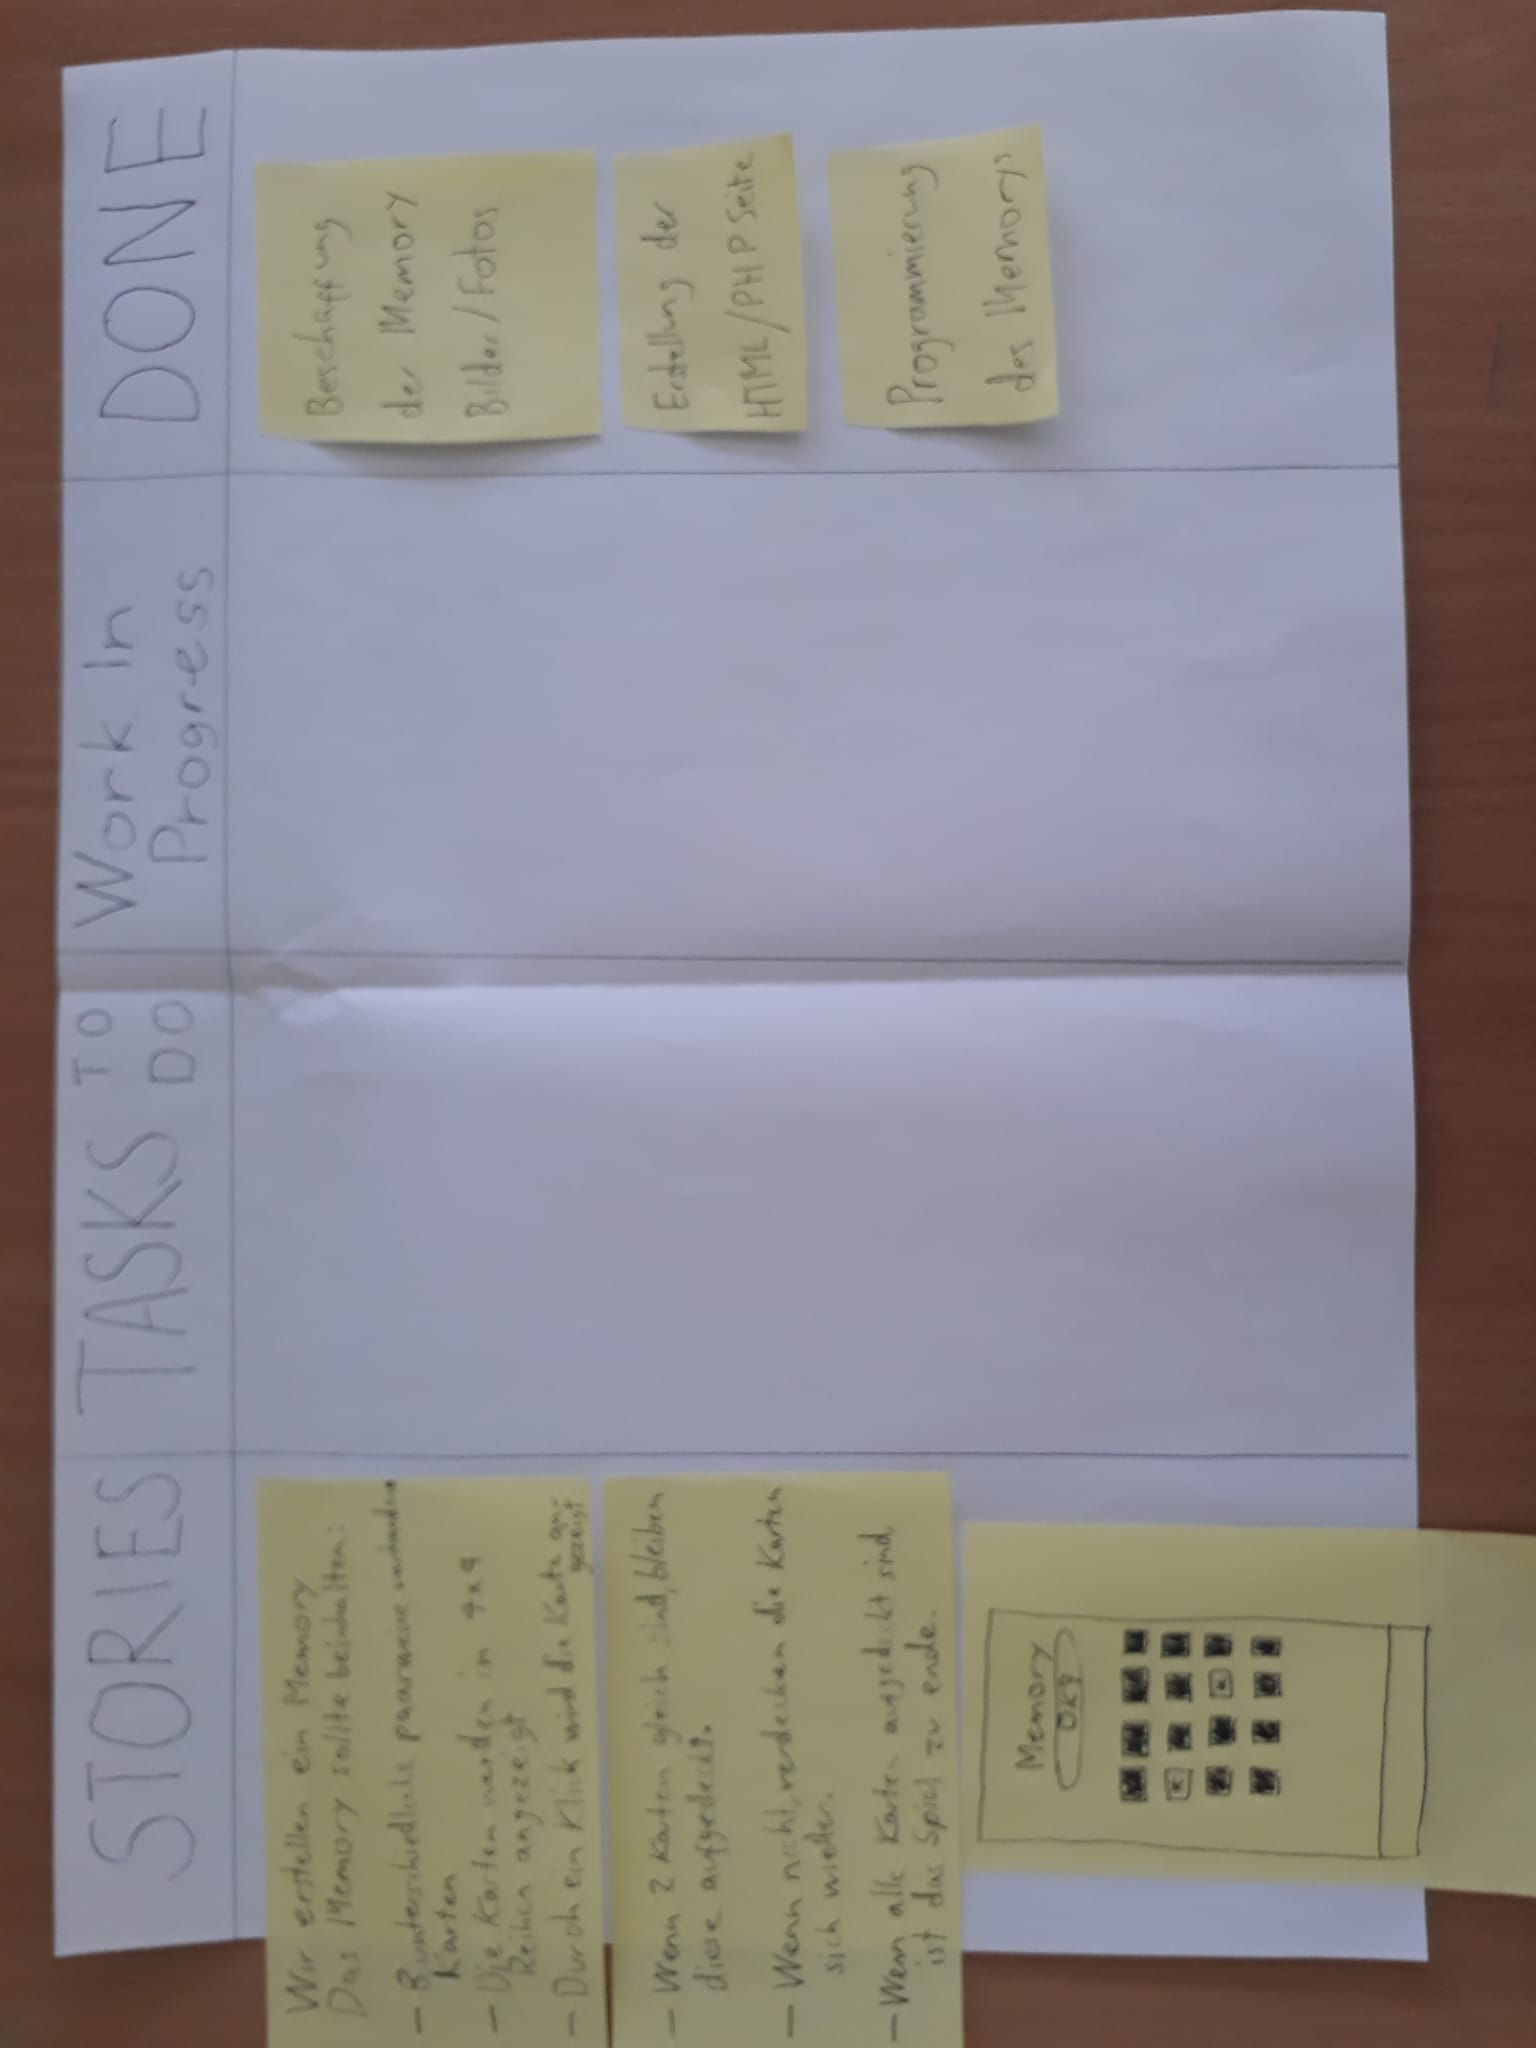 STORIES
TASKS TO DO
Work In Progress
DONE
Wir erstellen ein Memory
Das Memory sollte beinhalten:
- 8 unterschiedliche paarweise vorhandene
Karten
- Die Karten werden in 4x4
Reihen angezeigt
- Durch ein Klick wird die Karte an-
gezeigt
- Wenn 2 Karten gleich sind, bleiben
diese aufgedeckt.
- Wenn nicht, verdecken die Karten
sich wieder.
- Wenn alle Karten aufgedeckt sind,
ist das Spiel zu ende.
Memory
OK?
Beschaffung
der Memory
Bilder/Fotos
Erstellung der
HTML/PHP Seite
Programmierung
des Memorys